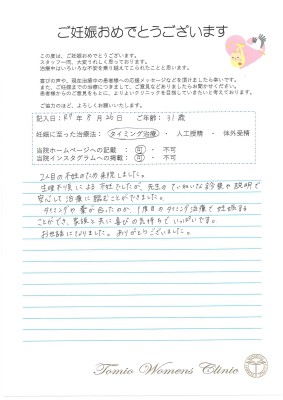 ご妊娠おめでとうございます
この度は、ご妊娠おめでとうございます。
スタッフ一同、大変うれしく思っております。
治療中はいろいろな不安を乗り越えてこられたことと思います。
喜びの声や、現在治療中の患者様への応援メッセージなどを頂けましたら幸いです。
また、ご妊娠までの治療につきまして、ご意見などありましたらお聞かせください。
患者様からのご意見をもとに、よりよいクリニックを目指していきたいと考えております。
ご協力のほど、よろしくお願いいたします。
記入日：R7年 8月 26日 ご年齢：31歳
妊娠に至った治療法：タイミング治療・人工授精・体外受精
当院ホームページへの記載：可・不可
当院インスタグラムへの掲載：可・不可
2人目の不妊のため来院しました。
生理不順による不妊でしたが、先生のていねいな診察や説明で
安心して治療に臨むことができました。
タイミングや薬が合ったのか、1度目のタイミング治療で妊娠する
ことができ、家族と共に喜びの気持ちでいっぱいです。
お世話になりました。ありがとうございました。
Tomio Womens Clinic